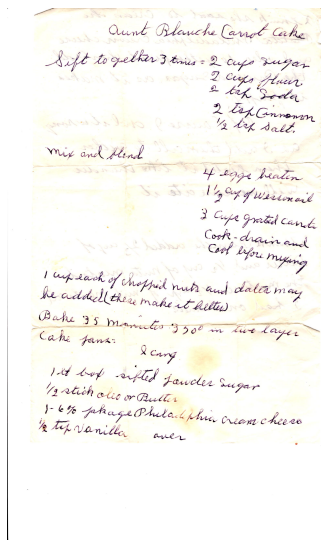 Aunt Blanche Carrot Cake
Sift together 3 times = 2 cups sugar
2 cups flour
2 tsp Soda
2 tsp Cinnamon
1/2 tsp Salt.
Mix and blend
4 eggs beaten
1 1/2 cup of Wesson oil
3 Cups grated carrots
Cook - drain and
Cool before mixing
1 cup each of chopped nuts and dates may
be added (these make it better)
Bake 35 minutes 350° in two layer
Cake pans.
Icing
1 lb box sifted powder sugar
1/2 stick oleo or Butter
1- 6 oz pkage Philadelphia cream cheese
1/2 tsp Vanilla over